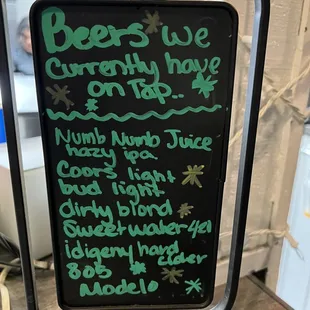 Beers we
Currently have
on Tap..
Numb Numb Juice
hazy ipa
Coors light
bud light
dirty blond
Sweetwater 420
idigeny hard
cider
805
Modelo